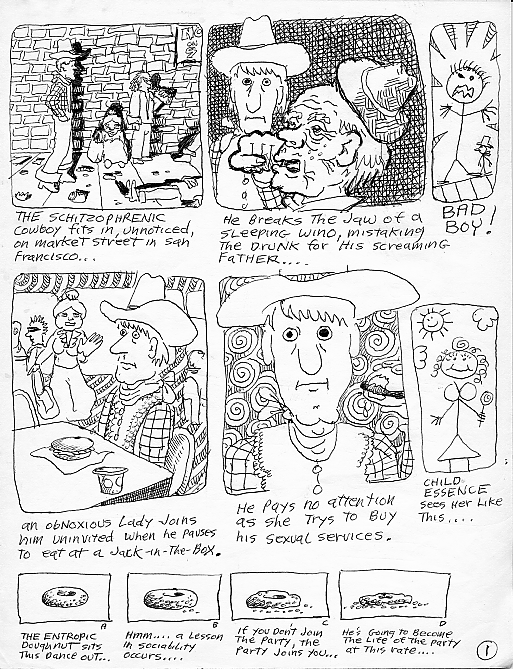 THE SCHITZOPHRENIC
COWBOY FITS IN, UNNOTICED,
ON MARKET STREET IN SAN
FRANCISCO...
HE BREAKS THE JAW OF A
SLEEPING WINO, MISTAKING
THE DRUNK FOR HIS SCREAMING
FATHER....
BAD
BOY!
AN OBNOXIOUS LADY JOINS
HIM UNINVITED WHEN HE PAUSES
TO EAT AT A JACK-IN-THE-BOX.
HE PAYS NO ATTENTION
AS SHE TRYS TO BUY
HIS SEXUAL SERVICES.
CHILD
ESSENCE
SEES HER LIKE
THIS....
A
B
C
D
THE ENTROPIC
DOUGHNUT SITS
THIS DANCE OUT...
HMM.... A LESSON
IN SOCIABILITY
OCCURS....
IF YOU DON'T JOIN
THE PARTY, THE
PARTY JOINS YOU...
HE'S GOING TO BECOME
THE LIFE OF THE PARTY
AT THIS RATE....
1